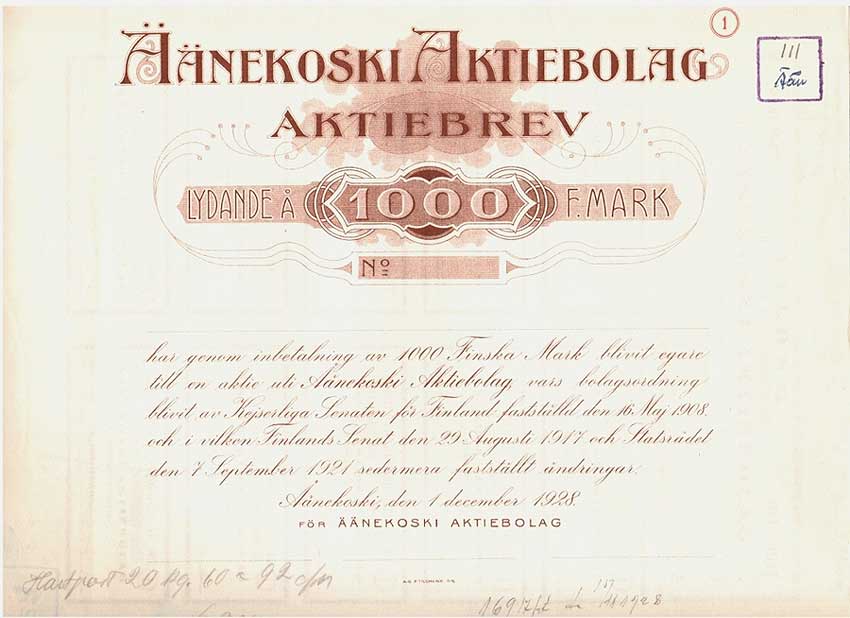 1
III
ÄÄNEKOSKI AKTIEBOLAG
AKTIEBREV
LYDANDE Å 1000 F. MARK
No
har genom inbetalning av 1000 Finska Mark blivit egare
till en aktie uti Äänekoski Aktiebolag, vars bolagsordning
blivit av Kejserliga Senaten för Finland fastställd den 16. Maj 1908.
och i vilken Finlands Senat den 29 Augusti 1917 och Statsrådet
den 7 September 1921 sedermera fastställt ändringar.
Äänekoski, den 1 december 1928.
FÖR ÄÄNEKOSKI AKTIEBOLAG
20 kg. 60 92